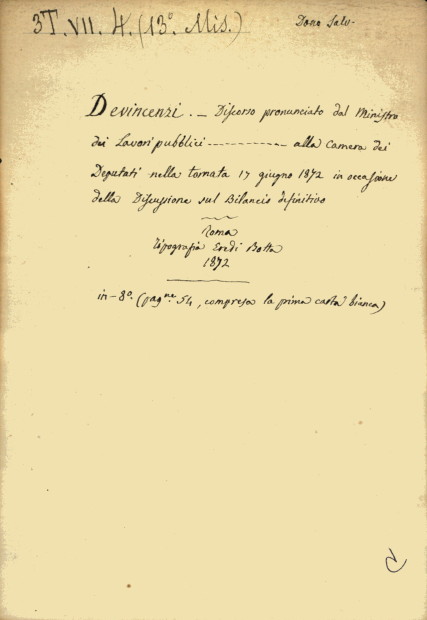 3T. VII. 4. (13º Mis.)
Dono Salv-
Devincenzi. _ Discorso pronunciato dal Ministro
dei Lavori pubblici ----------- alla Camera dei
Deputati nella tornata 17 giugno 1872 in occasione
della Discussione sul Bilancio definitivo
Roma
Tipografia Eredi Botta
1872
in-8º. (pagne. 54, compresa la prima carta bianca)